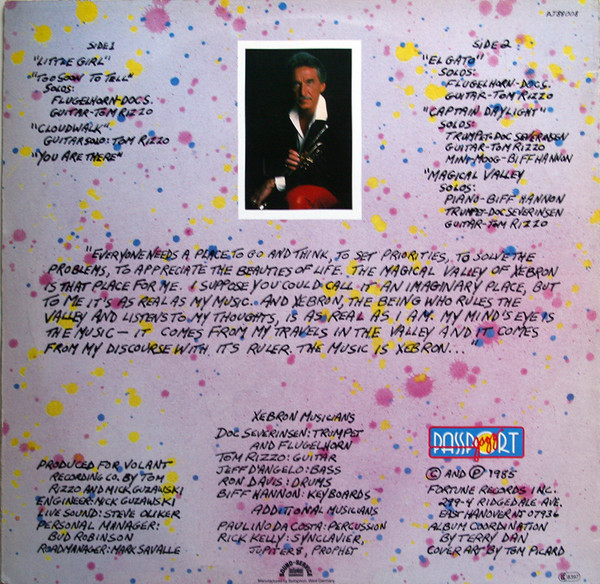 AJ88008
SIDE 1
"LITTLE GIRL"
"TOO SOON TO TELL"
SOLOS:
FLUGELHORN-DOC S.
GUITAR-TOM RIZZO
"CLOUDWALK"
GUITAR SOLO: TOM RIZZO
"YOU ARE THERE"
SIDE 2
"EL GATO"
SOLOS:
FLUGELHORN-DOC S.
GUITAR-TOM RIZZO
"CAPTAIN DAYLIGHT"
SOLOS
TRUMPET-DOC SEVERINSEN
GUITAR-TOM RIZZO
MINI-MOOG-BIFF HANNON
"MAGICAL VALLEY
SOLOS:
PIANO-BIFF HANNON
TRUMPET-DOC SEVERINSEN
GUITAR-TOM RIZZO
"EVERYONE NEEDS A PLACE TO GO AND THINK, TO SET PRIORITIES, TO SOLVE THE
PROBLEMS, TO APPRECIATE THE BEAUTIES OF LIFE. THE MAGICAL VALLEY OF XEBRON
IS THAT PLACE FOR ME. I SUPPOSE YOU COULD CALL IT AN IMAGINARY PLACE, BUT
TO ME IT'S AS REAL AS MY MUSIC. AND XEBRON, THE BEING WHO RULES THE
VALLEY AND LISTENS TO MY THOUGHTS, IS AS REAL AS I AM. MY MIND'S EYE IS
THE MUSIC — IT COMES FROM MY TRAVELS IN THE VALLEY AND IT COMES
FROM MY DISCOURSE WITH IT'S RULER. THE MUSIC IS XEBRON..."
PRODUCED FOR VOLANT
RECORDING CO. BY TOM
RIZZO AND MICK GUZAUSKI
ENGINEER: MICK GUZAUSKI
LIVE SOUND: STEVE OLIKER
PERSONAL MANAGER:
BUD ROBINSON
ROADMANAGER: MARK SAVALLE
XEBRON MUSICIANS
DOC SEVERINSEN: TRUMPET
AND FLUGELHORN
TOM RIZZO: GUITAR
JEFF D'ANGELO: BASS
RON DAVIS: DRUMS
BIFF HANNON: KEYBOARDS
ADDITIONAL MUSICIANS
PAULINO DA COSTA: PERCUSSION
RICK KELLY: SYNCLAVIER,
JUPITER 8, PROPHET
SOUND-SERVICE
PASSPORT
jazz
© AND ℗ 1985
FORTUNE RECORDS INC.
EAST HANOVER NJ 07936
ALBUM COORDINATION
BY TERRY DAN
COVER ART BY TOM PILARD